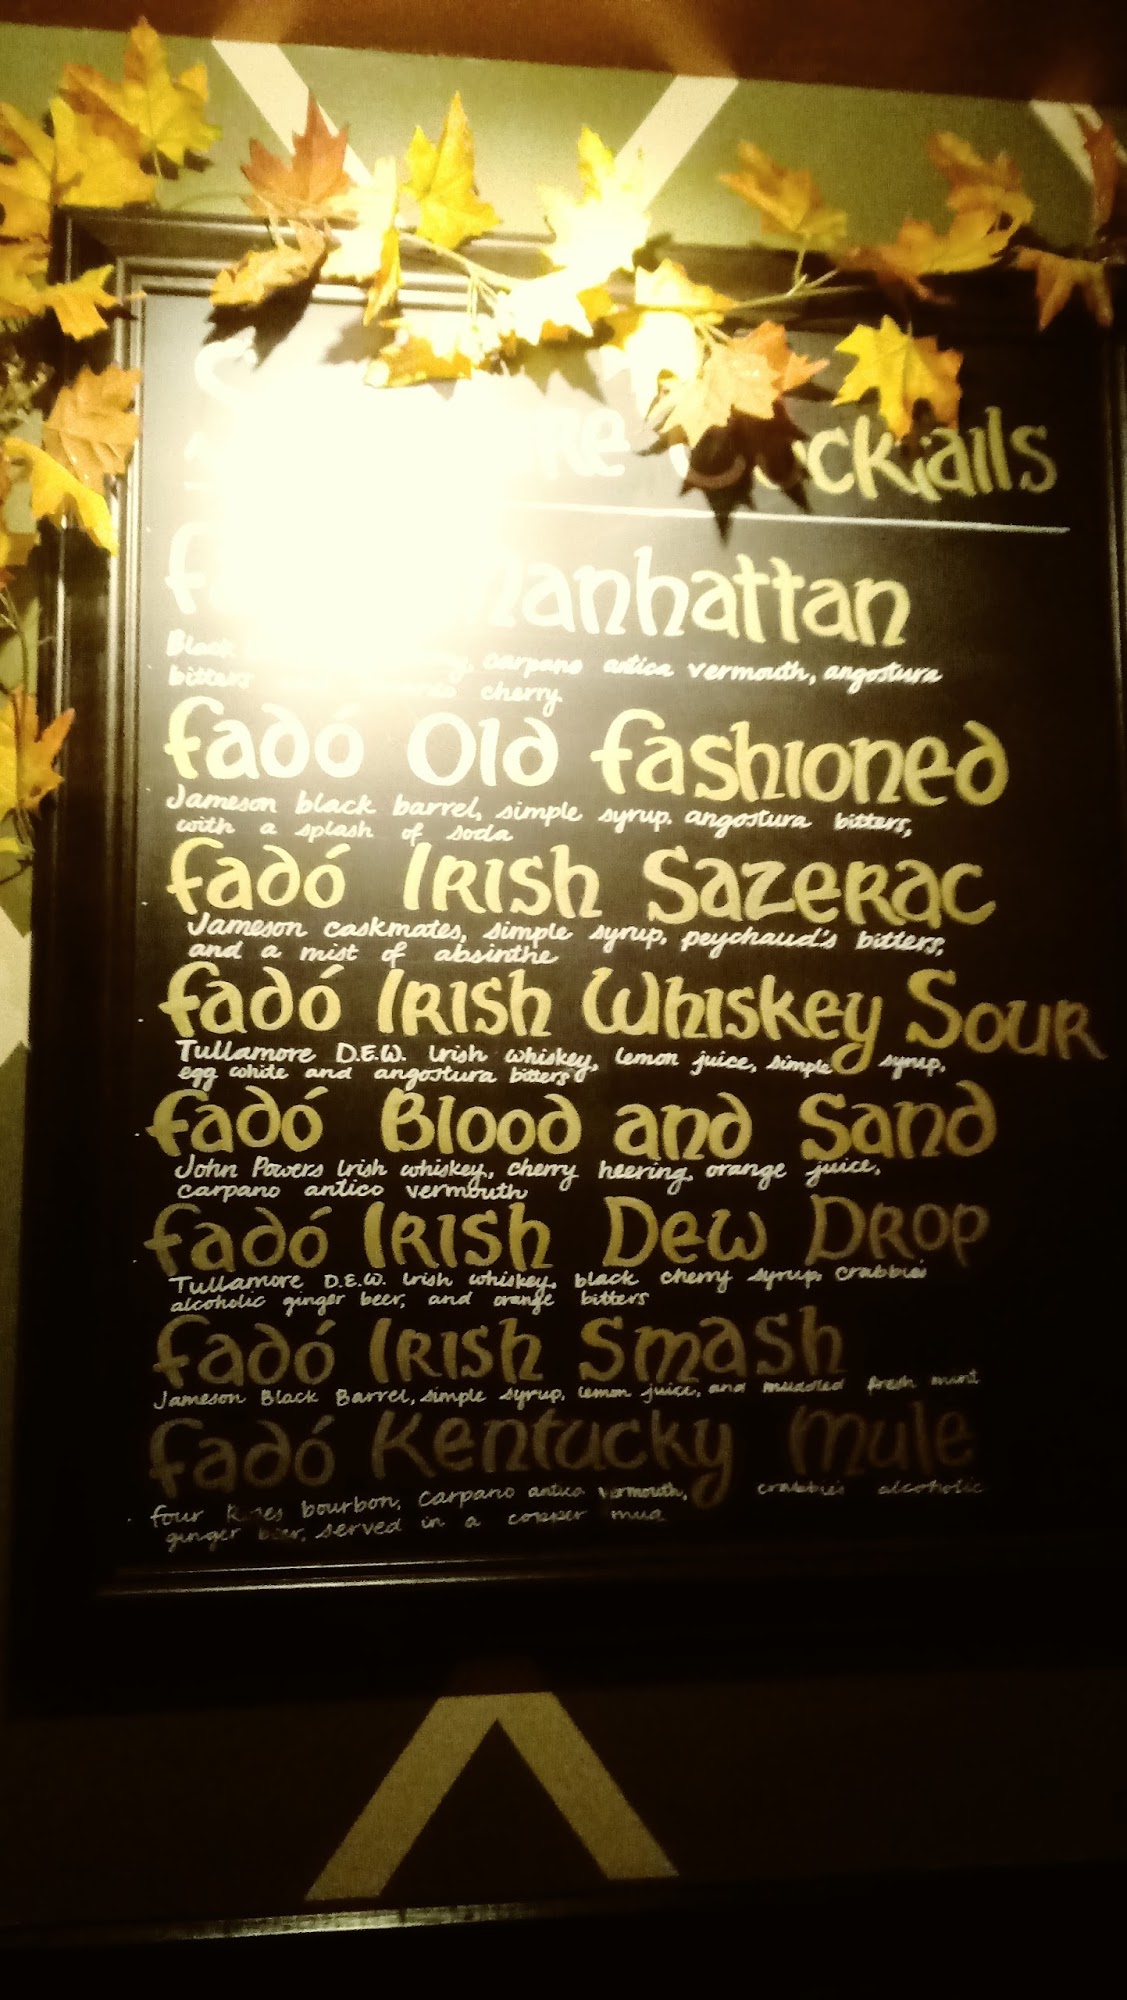 Cocktails
Manhattan
Black carpano antica vermouth, angostura
bitters cherry
fadó Old fashioned
Jameson black barrel, simple syrup, angostura bitters,
with a splash of soda
fadó Irish Sazerac
Jameson caskmates, simple syrup, peychaud's bitters,
and a mist of absinthe
fadó Irish Whiskey Sour
Tullamore D.E.W. Irish whiskey, lemon juice, simple syrup,
egg white and angostura bitters
fadó Blood and Sand
John Powers Irish whiskey, cherry heering, orange juice,
carpano antico vermouth
fadó Irish Dew Drop
Tullamore D.E.W. Irish whiskey, black cherry syrup, crabbies
alcoholic ginger beer, and orange bitters
fadó Irish Smash
Jameson Black Barrel, simple syrup, lemon juice, and muddled fresh mint
fadó Kentucky Mule
four Roses bourbon, carpano antica vermouth, crabbies alcoholic
ginger beer, served in a copper mug